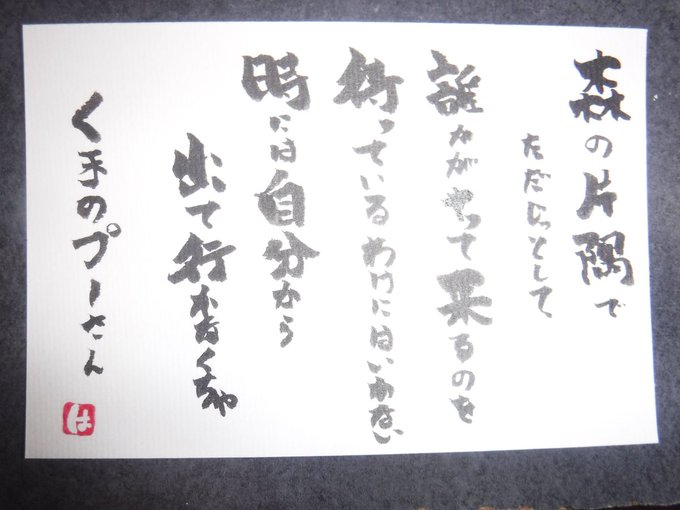 森の片隅で
ただじっとして
誰かがやって来るのを
待っているわけにはいかない
時には自分から
出て行かなくちゃ
くまのプーさん
は